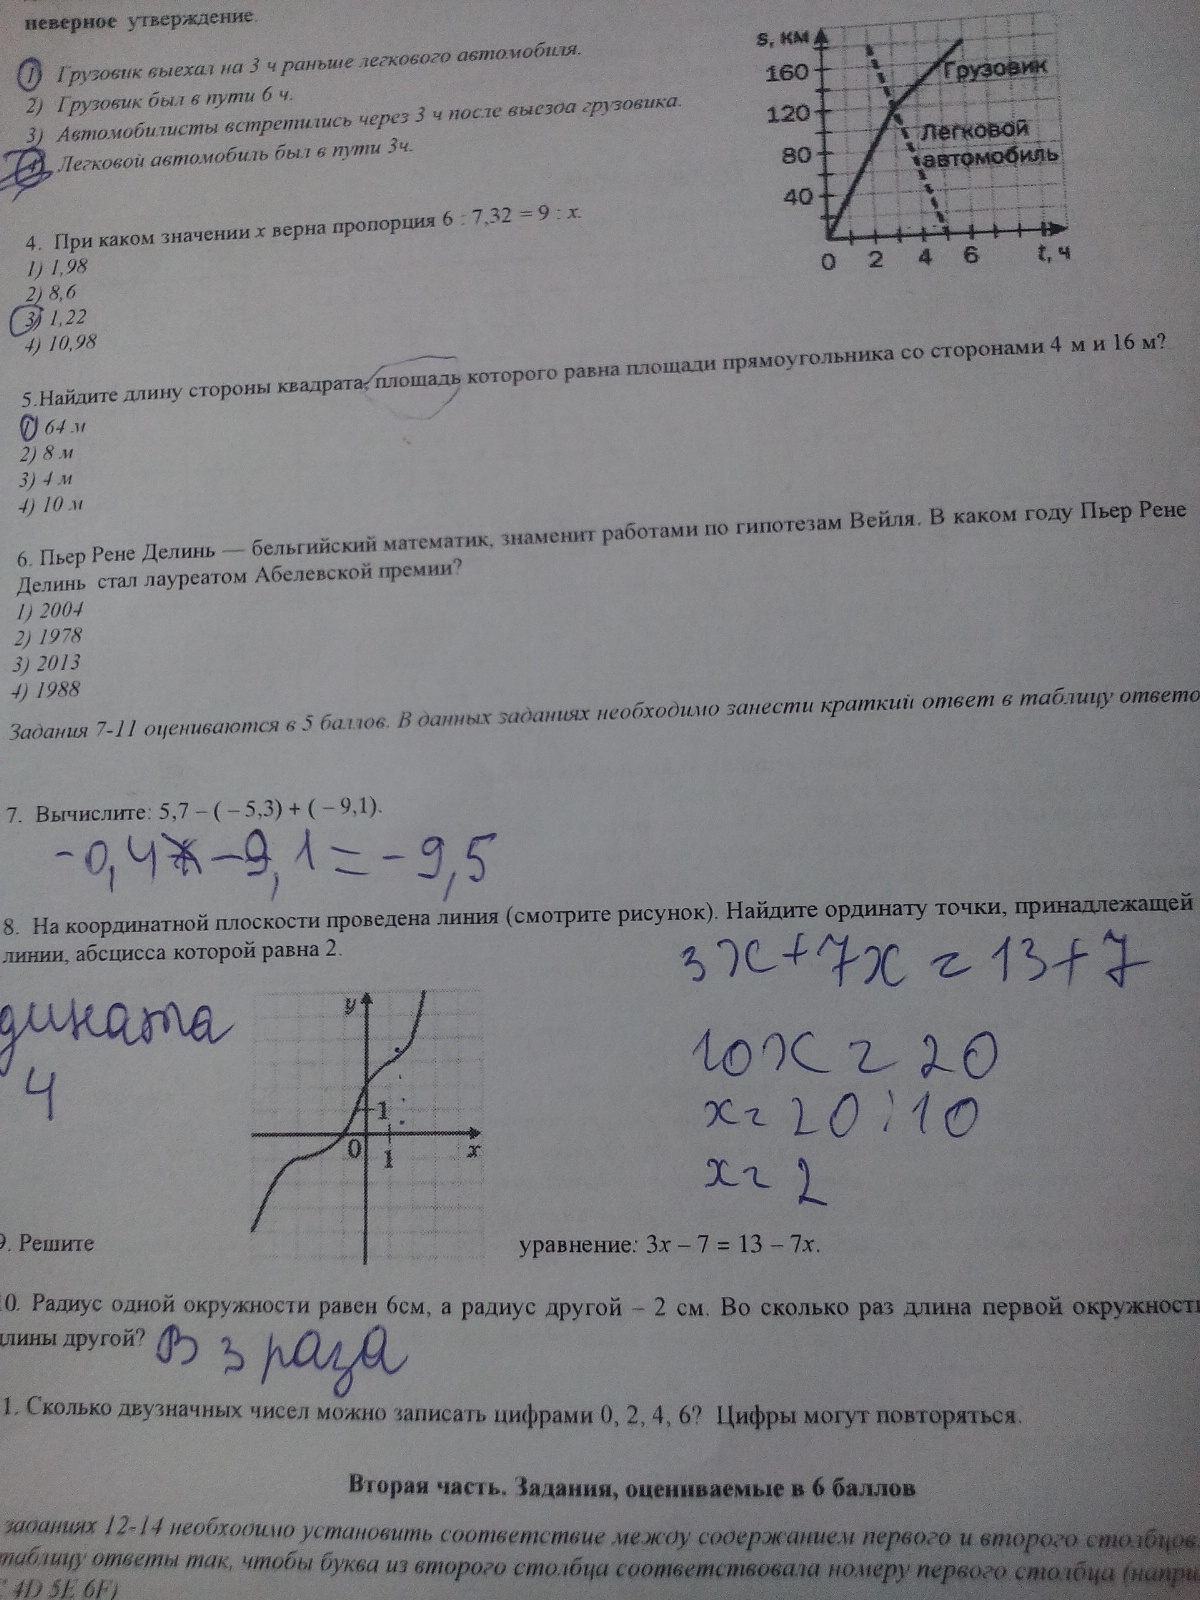 неверное утверждение.
1) Грузовик выехал на 3 ч раньше легкового автомобиля.
2) Грузовик был в пути 6 ч.
3) Автомобилисты встретились через 3 ч после выезда грузовика.
4) Легковой автомобиль был в пути 3ч.
s, км
160
120
80
40
0 2 4 6 t, ч
Грузовик
Легковой
автомобиль
4. При каком значении x верна пропорция 6 : 7,32 = 9 : x.
1) 1,98
2) 8,6
3) 1,22
4) 10,98
5.Найдите длину стороны квадрата, площадь которого равна площади прямоугольника со сторонами 4 м и 16 м?
1) 64 м
2) 8 м
3) 4 м
4) 10 м
6. Пьер Рене Делинь — бельгийский математик, знаменит работами по гипотезам Вейля. В каком году Пьер Рене
Делинь стал лауреатом Абелевской премии?
1) 2004
2) 1978
3) 2013
4) 1988
Задания 7-11 оцениваются в 5 баллов. В данных заданиях необходимо занести краткий ответ в таблицу ответо
7. Вычислите: 5,7 – ( – 5,3) + ( – 9,1).
-0,4 -9,1 = -9,5
8. На координатной плоскости проведена линия (смотрите рисунок). Найдите ординату точки, принадлежащей
линии, абсцисса которой равна 2.
3x+7x=13+7
дината
4
10x=20
x=20:10
x=2
y
1
0 1 x
9. Решите уравнение: 3x – 7 = 13 – 7x.
10. Радиус одной окружности равен 6см, а радиус другой – 2 см. Во сколько раз длина первой окружност
длины другой?
В 3 раза
1. Сколько двузначных чисел можно записать цифрами 0, 2, 4, 6? Цифры могут повторяться.
Вторая часть. Задания, оцениваемые в 6 баллов
заданиях 12-14 необходимо установить соответствие между содержанием первого и второго столбцов.
таблицу ответы так, чтобы буква из второго столбца соответствовала номеру первого столбца (напри
4D 5E 6F)